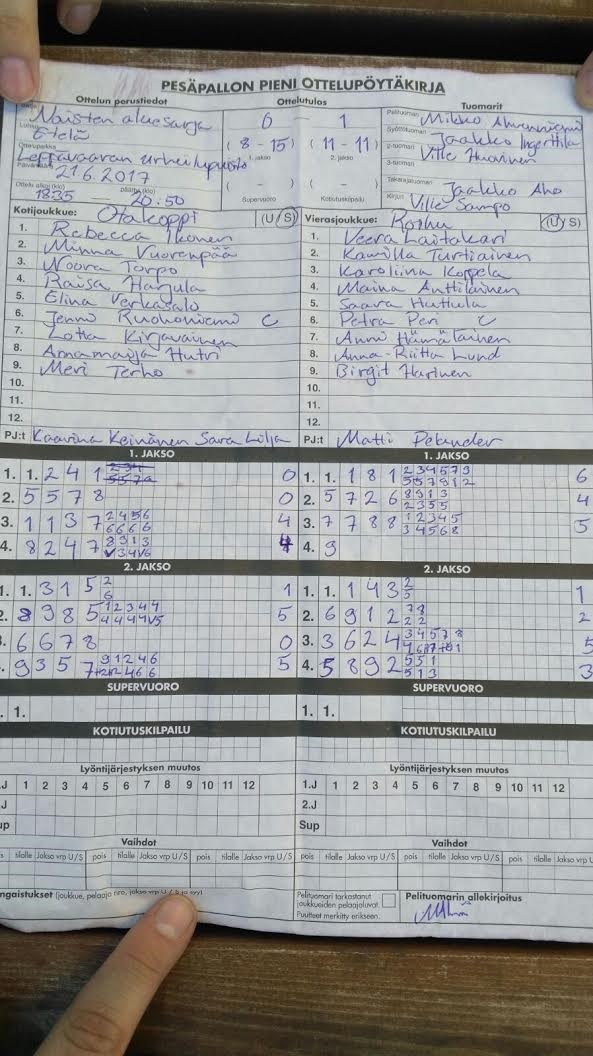 PESÄPALLON PIENI OTTELUPÖYTÄKIRJA
Ottelun perustiedot
Naisten aluesarja
ottelu
Otteluparkka
Leppävaaran urheilupuisto
Päivämäärä 21.6.2017
Ottelu alkoi (klo) 1835 päättyi (klo) 20.50
Ottelutulos
0 – 1
( 8 - 15 ) ( 11 - 11 )
1. jakso 2. jakso
( - ) ( - )
Supervuoro Kotiutuskilpailu
Tuomarit
Pelituomari Mikko
Syöttötuomari Jaakko
2-tuomari Ville
3-tuomari
Takarajatuomari Jaakko Aho
Kirjuri Ville Sampo
Kotijoukkue: Otakoppi (U/S)
1. Rebecca Ikonen
2. Minna Vuorenpää
3. Noora Torpo
4. Raisa Harjula
5. Elina Verkasalo
6. Jenni Ruohoniemi C
7. Lotta Kirjavainen
8. Annamaija Hutri
9. Meri Terho
10.
11.
12.
PJ:t Kaarina Keinänen Sara Lilja
Vierasjoukkue: Roihu (U/S)
1. Veera Laitakari
2. Kamilla Turtiainen
3. Karoliina Koppela
4. Maina Anttilainen
5. Saara Huttula
6. Petra Peri C
7. Anni Hämäläinen
8. Anna-Riitta Lund
9. Birgit Harinen
10.
11.
12.
PJ:t Matti Pekander
1. JAKSO
1. 1. 2 4 1 0
2. 5 5 7 8 0
3. 1 1 3 7 2 4 5 6 4
6 6 6 6
4. 8 2 4 7 8 9 1 3 4
1. JAKSO
1. 1. 1 8 1 2 3 4 5 7 3 6
5 5 7 9 1 2
2. 5 7 2 6 8 9 1 3 4
2 3 5 5
3. 7 7 8 8 1 2 3 4 5 5
3 4 5 6 8
4. 9
2. JAKSO
1. 1. 3 1 5 2 1
6
2. 8 9 8 5 1 2 3 4 4 5
3. 6 6 7 8 0
9 3 5 7 9 1 2 4 6 5
2. JAKSO
1. 1. 1 4 3 2 1
5
2. 6 9 1 2 7 8 2
2 2
3. 3 6 2 4 3 4 5 7 8 5
4. 5 8 9 2 5 5 1 3
5 1 3
SUPERVUORO
1.
SUPERVUORO
1. 1.
KOTIUTUSKILPAILU
KOTIUTUSKILPAILU
Lyöntijärjestyksen muutos
.J 1 2 3 4 5 6 7 8 9 10 11 12
.J
up
Lyöntijärjestyksen muutos
1.J 1 2 3 4 5 6 7 8 9 10 11 12
2.J
Sup
Vaihdot
tilalle Jakso vrp U/S pois tilalle Jakso vrp U/S pois tilalle Jakso vrp U/S
Vaihdot
pois tilalle Jakso vrp U/S pois tilalle Jakso vrp U/S pois tilalle Jakso vrp
ngaistukset (joukkue, pelaaja nro, jakso vrp U / S ja syy)
Pelituomari tarkastanut
joukkueiden pelaajaluvat.
Puutteet merkitty erikseen.
Pelituomarin allekirjoitus